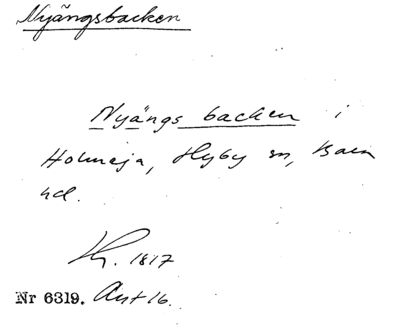 Nyängsbacken
Nyängs backen i
Holmeja, Hyby sn, Bara
hd.
1817
Nr 6319. Avt 16.